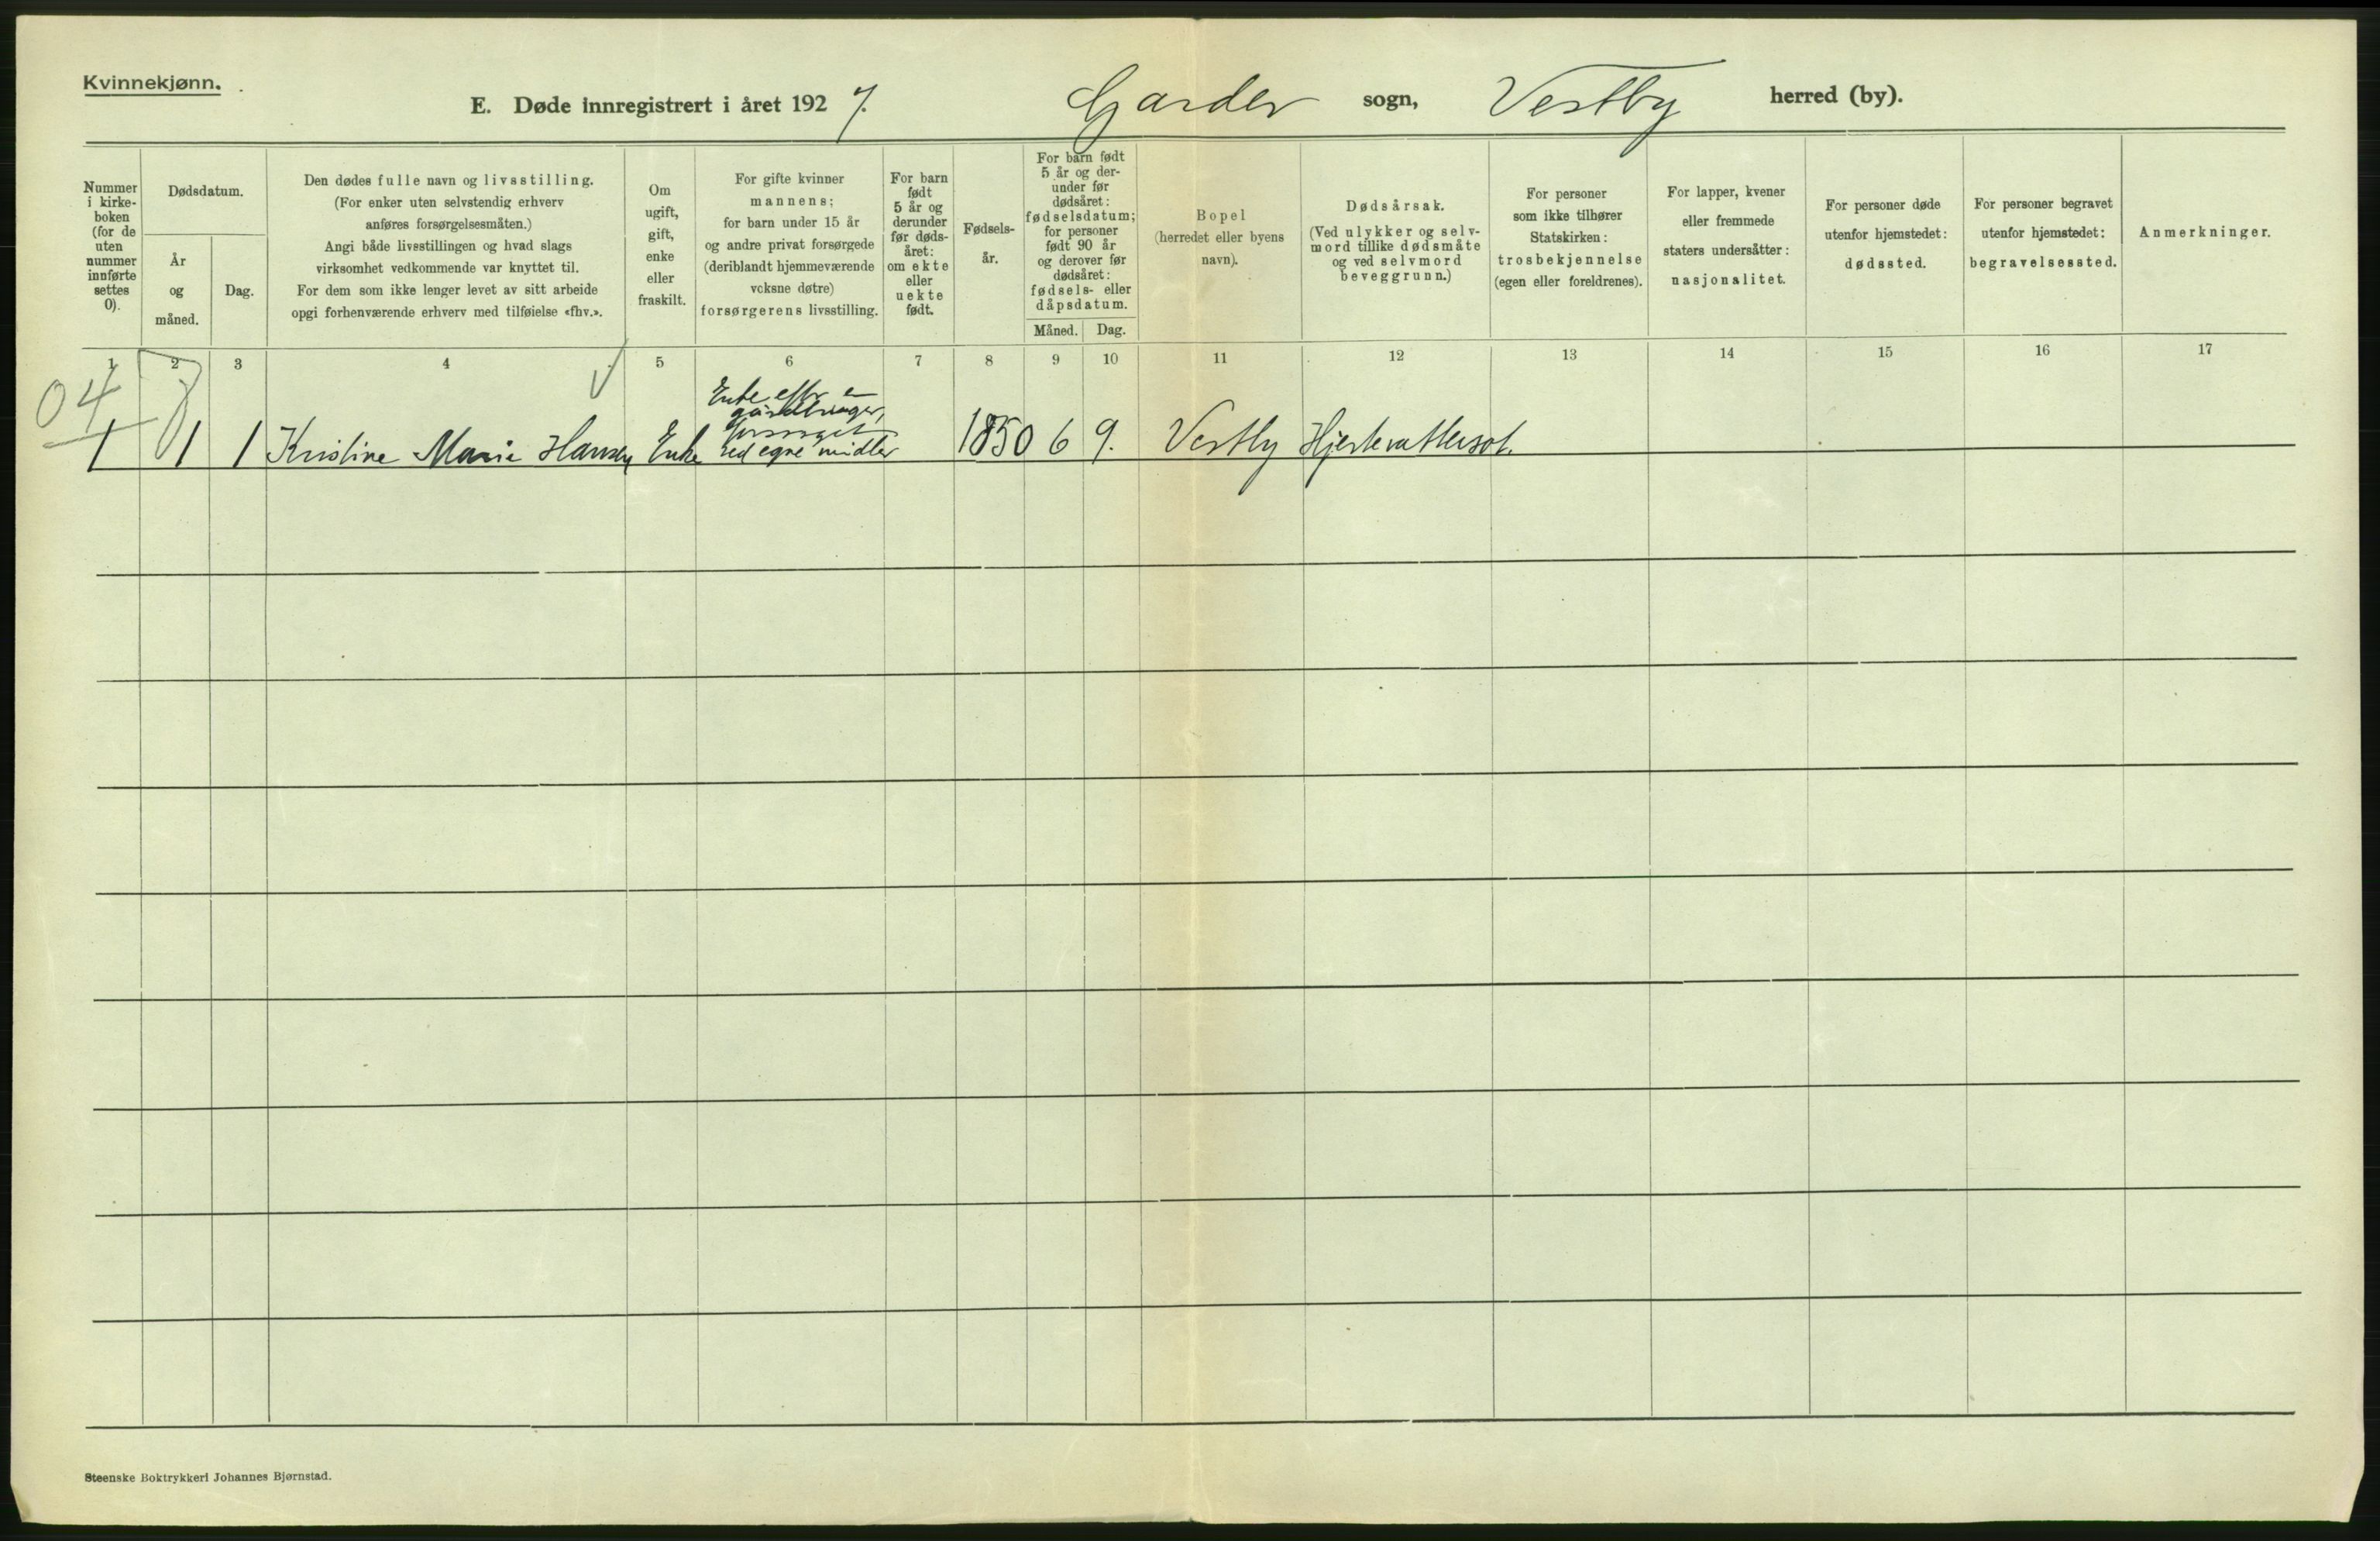 Kvinnekjønn.
E. Døde innregistrert i året 1927. Garder sogn, Vestby herred (by).
Nummer
i kirke-
boken
(for de
uten
nummer
innførte
settes
0).
Dødsdatum.
År
og
måned.
Dag.
Den dødes fulle navn og livsstilling.
(For enker uten selvstendig erhverv
anføres forsørgelsesmåten.)
Angi både livsstillingen og hvad slags
virksomhet vedkommende var knyttet til.
For dem som ikke lenger levet av sitt arbeide
opgi forhenværende erhverv med tilføielse «fhv.».
Om
ugift,
gift,
enke
eller
fraskilt.
For gifte kvinner
mannens;
for barn under 15 år
og andre privat forsørgede
(deriblandt hjemmeværende
voksne døtre)
forsørgerens livsstilling.
For barn
født
5 år og
derunder
før døds-
året:
om ekte
eller
uekte
født.
Fødsels-
år.
For barn født
5 år og der-
under før
dødsåret:
fødselsdatum;
for personer
født 90 år
og derover før
dødsåret:
fødsels- eller
dåpsdatum.
Måned. Dag.
Bopel
(herredet eller byens
navn).
Dødsårsak.
(Ved ulykker og selv-
mord tillike dødsmåte
og ved selvmord
beveggrunn.)
For personer
som ikke tilhører
Statskirken:
trosbekjennelse
(egen eller foreldrenes).
For lapper, kvener
eller fremmede
staters undersåtter:
nasjonalitet.
For personer døde
utenfor hjemstedet:
dødssted.
For personer begravet
utenfor hjemstedet:
begravelsessted.
Anmerkninger.
1 2 3 4 5 6 7 8 9 10 11 12 13 14 15 16 17
04
Enke efter en
gårdbruger,
forsørget
ved egne midler
1 1 1 Kristine Marie Hansen Enke 1850 6 9. Vestby Hjertevattersot.
Steenske Boktrykkeri Johannes Bjørnstad.